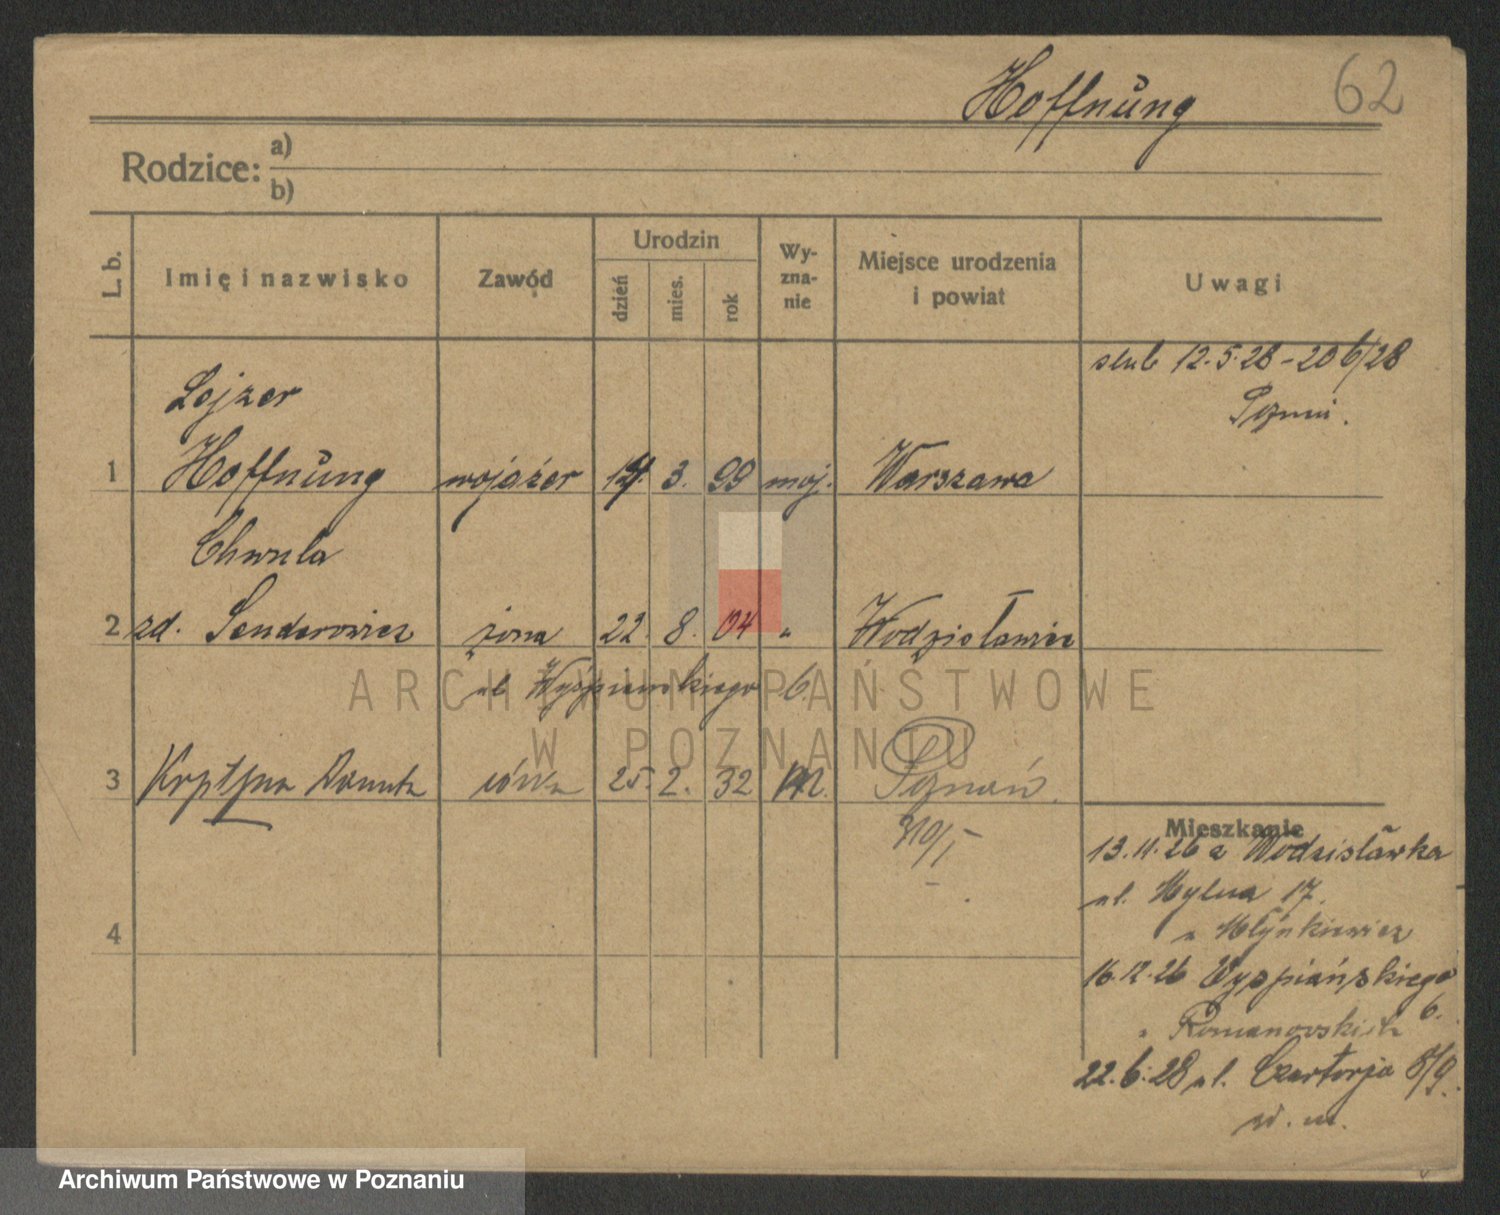 Hoffnung
62
Rodzice: a)
b)
L. b.
Imię i nazwisko
Zawód
Urodzin
dzień
mies.
rok
Wy-
zna-
nie
Miejsce urodzenia
i powiat
Uwagi
ślub 12.5.28 - 20 6/28
Pozna.
Lejzer
1 Hoffnung wojażer 14. 3. 99 mojż. Warszawa
Chwula
2 zd. Senderowicz żona 22. 8. 04 " Wodzisławice
ul. Wyśpiańskiego 6.
3 Krystyna Danuta córka 25. 2. 32 M. Poznań.
4
Mieszkanie
13.11.26 z Wodzisławka
ul. Mylna 17.
u Młynkiewicz
16.12.26 Wyspiańskiego
6.
u Romanowskich
22.6.28 ul. Czartorja 8/9.
w. m.
ARCHIWUM PAŃSTWOWE
W POZNANIU
Archiwum Państwowe w Poznaniu